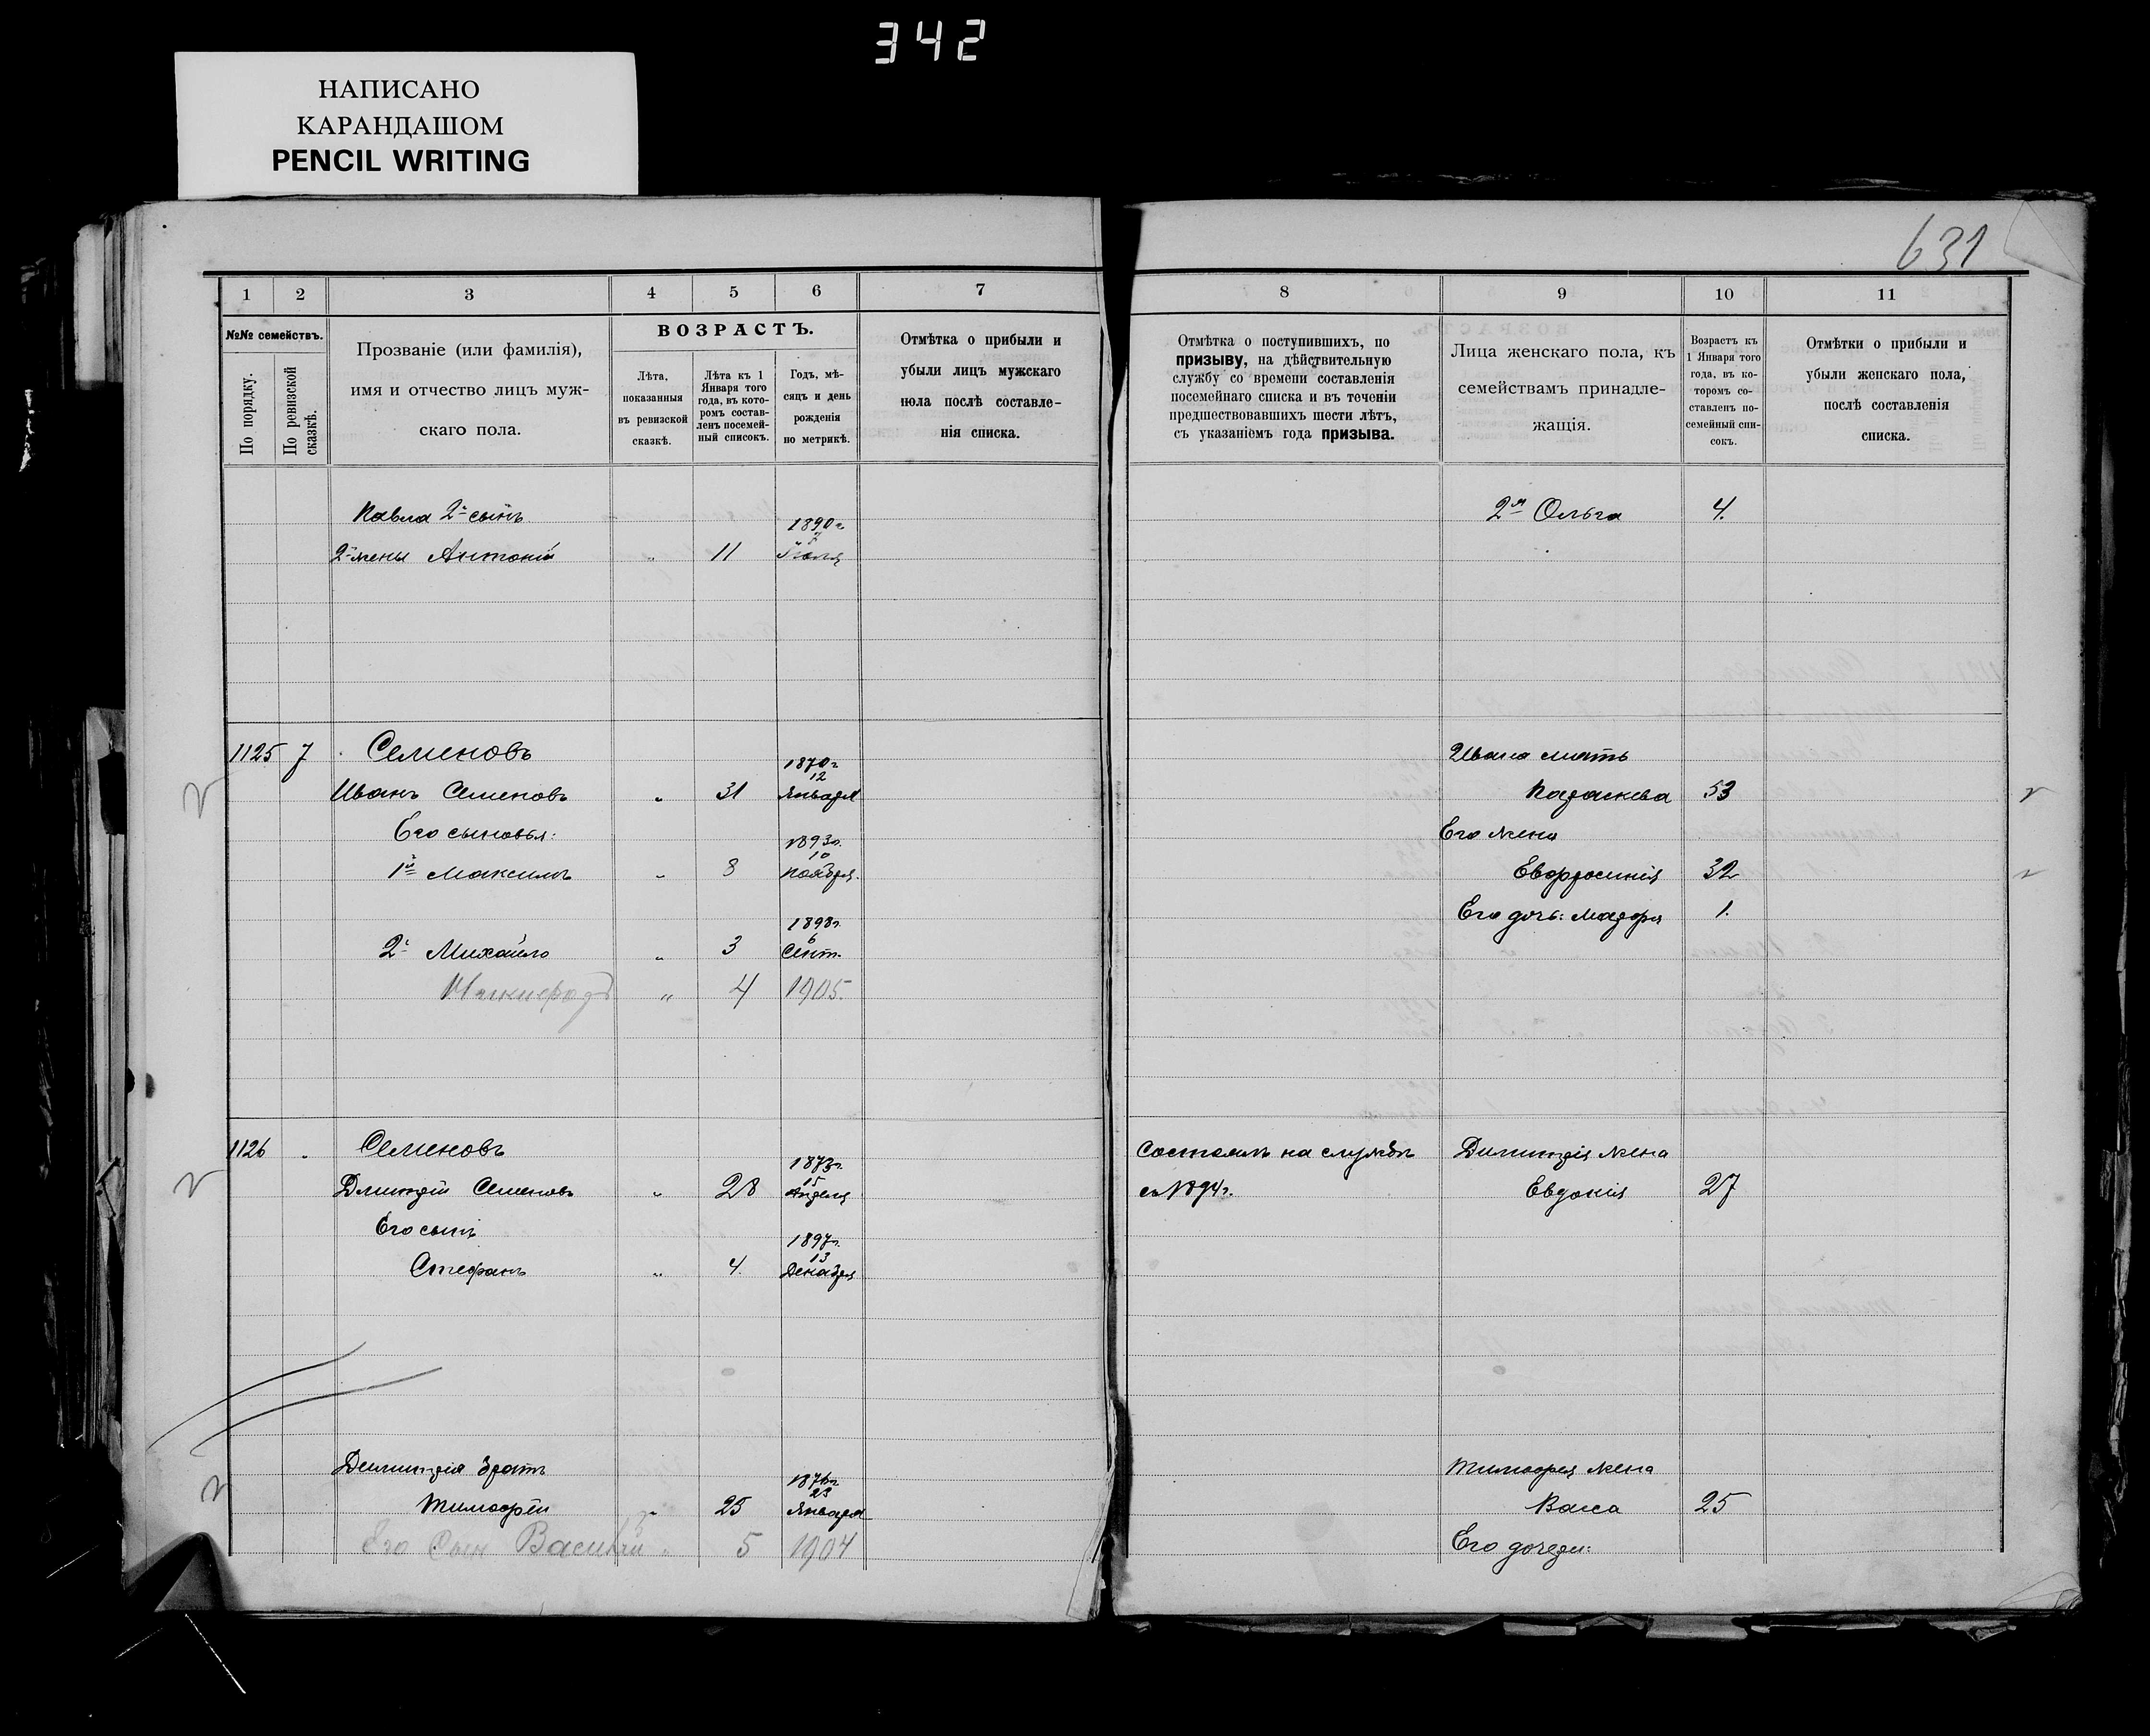 342
НАПИСАНО
КАРАНДАШОМ
PENCIL WRITING
631
1 2 3 4 5 6 7 8 9 10 11
№№ семействъ.
По порядку.
По ревизской сказкѣ.
Прозваніе (или фамилія),
имя и отчество лицъ муж-
скаго пола.
ВОЗРАСТЪ.
Лѣта,
показанныя
въ ревизской
сказкѣ.
Лѣта къ 1
Января того
года, въ кото-
ромъ состав-
ленъ посемей-
ный списокъ.
Годъ, мѣ-
сяцъ и день
рожденія
по метрикѣ.
Отмѣтка о прибыли и
убыли лицъ мужскаго
пола послѣ составле-
нія списка.
Отмѣтка о поступившихъ, по
призыву, на дѣйствительную
службу со времени составленія
посемейнаго списка и въ теченіи
предшествовавшихъ шести лѣтъ,
съ указаніемъ года призыва.
Лица женскаго пола, къ
семействамъ принадле-
жащія.
Возрастъ къ
1 Января того
года, въ ко-
торомъ со-
ставленъ по-
семейный спи-
сокъ.
Отмѣтки о прибыли и
убыли женскаго пола,
послѣ составленія
списка.
Павла 2й сынъ 1890 г. 2я Ольга 4.
2й жены Антоній " 11
1125 7 Семеновъ 1870 г. Ивана мать
12
Иванъ Семеновъ " 31 Января Параскева 53
Его сыновья: 1893 г. Его жена
10
1й Максимъ " 8 Ноября. Евфросинія 32
1898 г. Его дочь: Марфа 1.
6
2й Михаилъ " 3 Сент.
" 4 1905.
1126 " Семеновъ 1873 г. Состоялъ на службѣ Димитрія жена
15
Дмитрій Семеновъ " 28 Апреля съ 1894 г. Евдокія 27
Его сынъ 1897 г.
13
Стефанъ " 4. Декабря
Димитрія братъ 1876 г. Тимофея жена
23
Тимофей " 25 Января Васса 25
Его сын Василий " 5 1904 Его дочери: